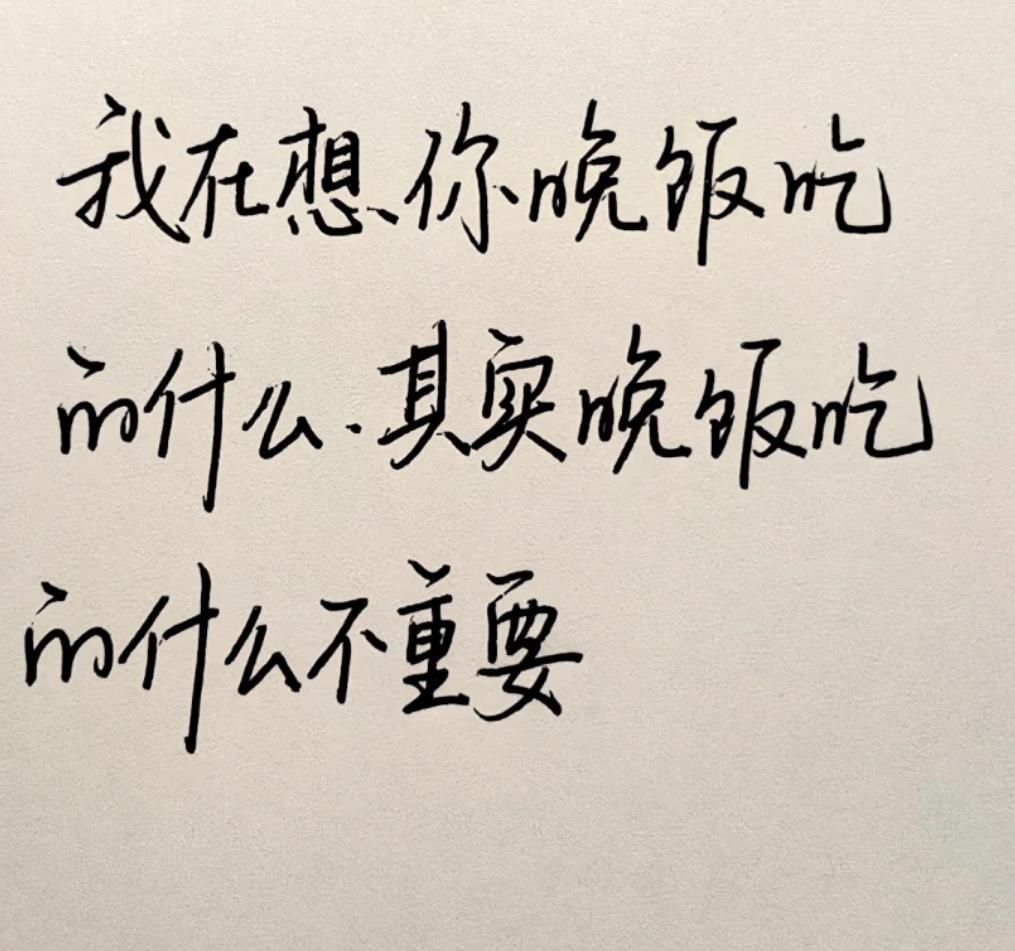 我在想你晚饭吃
的什么.其实晚饭吃
的什么不重要